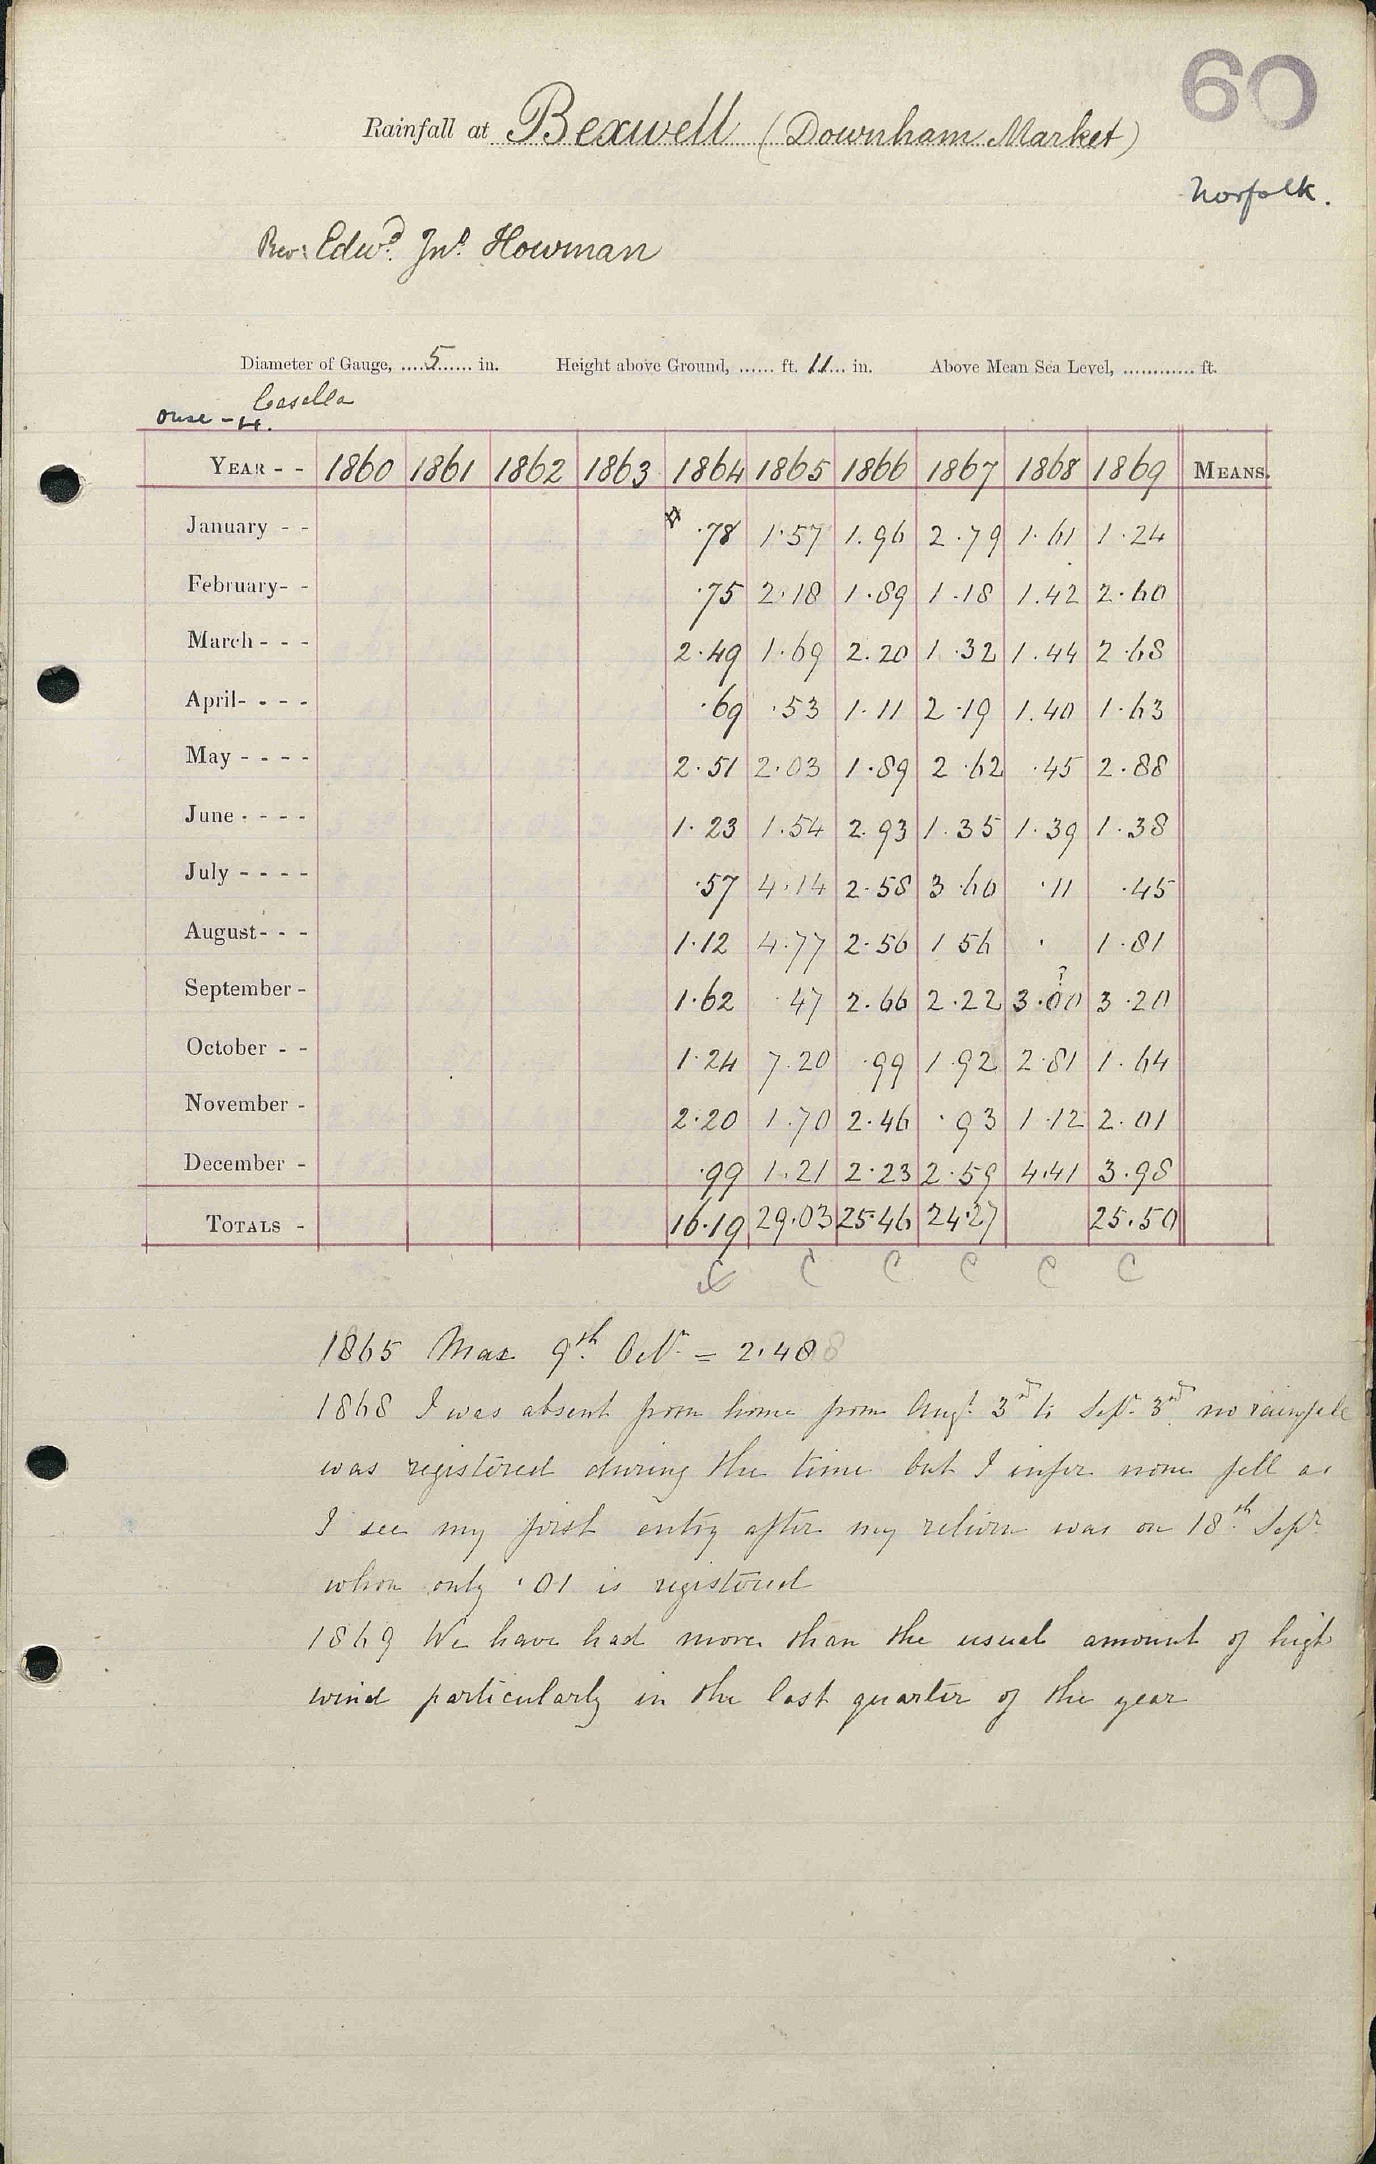 60
Rainfall at Bexwell (Downham Market)
Norfolk.
Rev: Edwd. Jno. Howman
Diameter of Gauge, ....5...... in. Height above Ground, ...... ft. 11... in. Above Mean Sea Level, ............ ft.
Casella
Ouse - H.
YEAR - - 1860 1861 1862 1863 1864 1865 1866 1867 1868 1869 MEANS.
January - - .78 1.57 1.96 2.79 1.61 1.24
February- - .75 2.18 1.89 1.18 1.42 2.60
March - - - 2.49 1.69 2.20 1.32 1.44 2.68
April- - - - .69 .53 1.11 2.19 1.40 1.63
May - - - - 2.51 2.03 1.89 2.62 .45 2.88
June - - - - 1.23 1.54 2.93 1.35 1.39 1.38
July - - - - .57 4.14 2.58 3.60 .11 .45
August- - - 1.12 4.77 2.56 1 56 . 1.81
September - 1.62 .47 2.66 2.22 3.00 ? 3.20
October - - 1.24 7.20 .99 1.92 2.81 1.64
November - 2.20 1.70 2.46 .93 1.12 2.01
December - .99 1.21 2.23 2.59 4.41 3.98
TOTALS - 16.19 29.03 25.46 24.27 25.50
C C C C C C
1865 Max 9th. Octr. = 2.48
1868 I was absent from home from Augt. 3rd to Sepr. 3rd no rainfall
was registered during the time but I infer none fell as
I see my first entry after my return was on 18th. Sepr
when only .01 is registered
1869 We have had more than the usual amount of high
wind particularly in the last quarter of the year